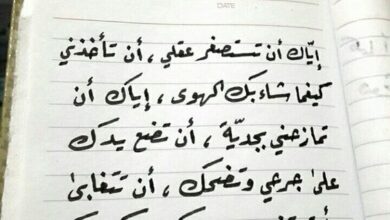 DATE
إيّاك أن تستصغر عقلي ، أن تأخذني
كيفما شاء بك الهوى ، إياك أن
تمازحني بجديّة ، أن تضع يدك
على جرحي وتضحك ، أن تتغابى